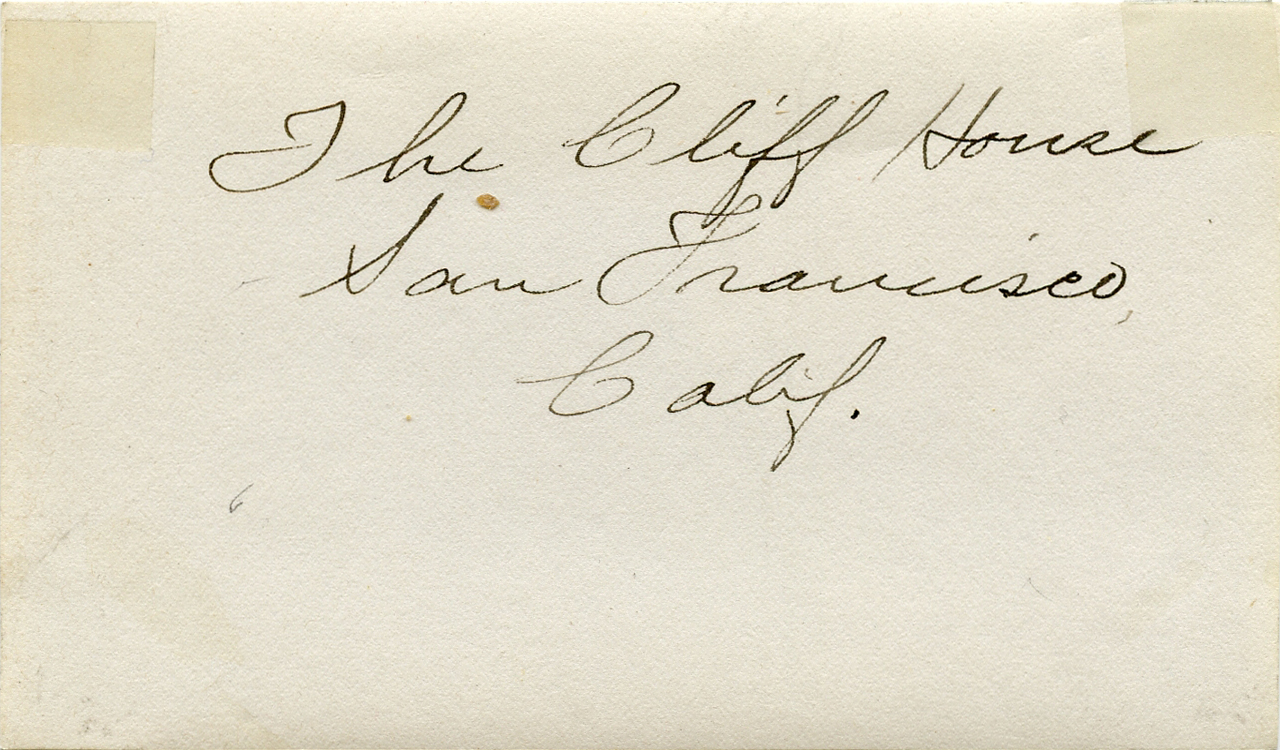 The Cliff House
San Francisco,
Calif.